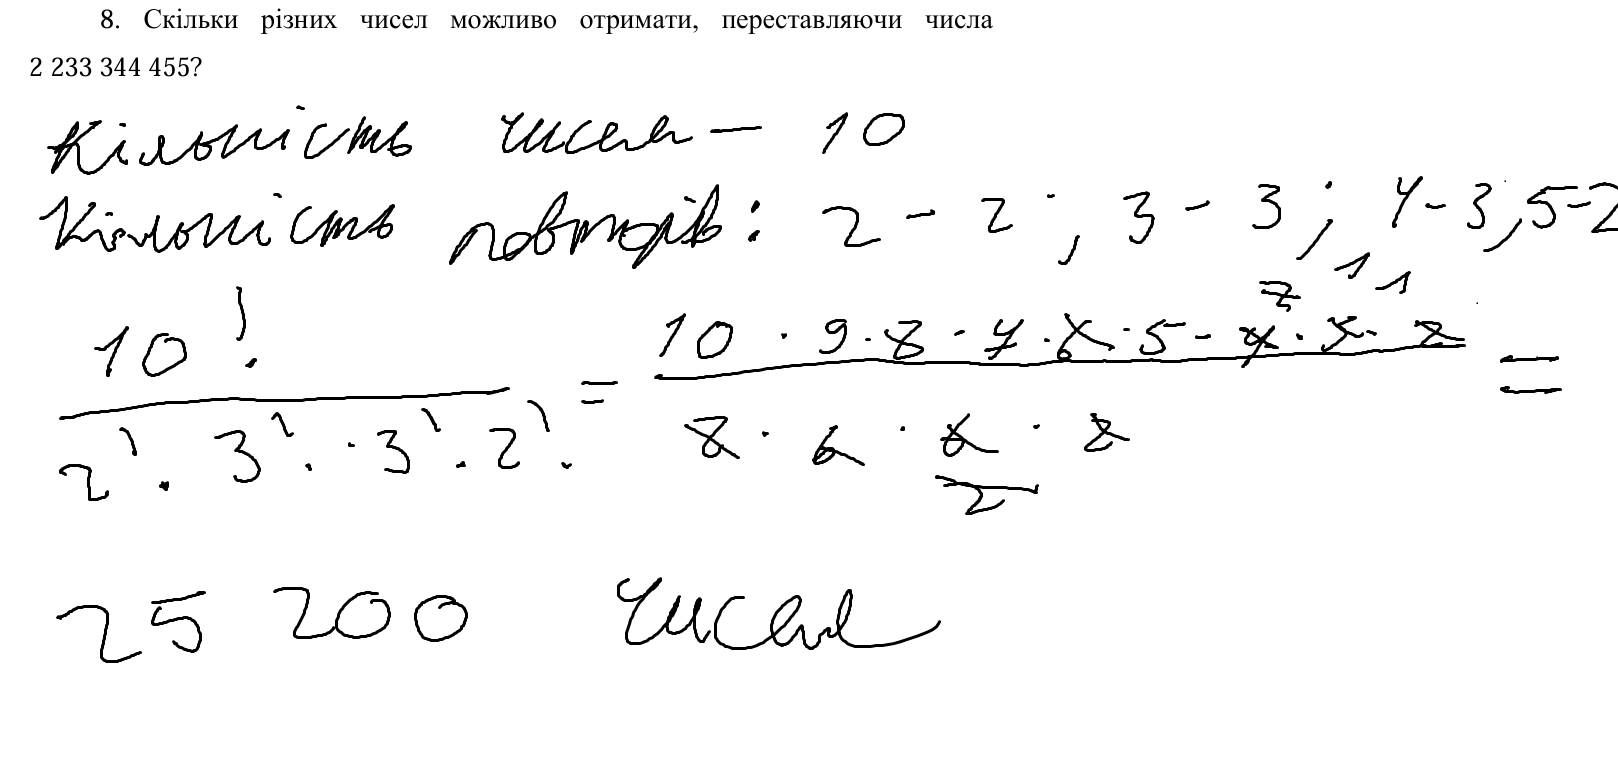 8. Скільки різних чисел можливо отримати, переставляючи числа
2 233 344 455?
Кількість чисел – 10
Кількість повторів: 2 – 2; 3 – 3; 4 – 3, 5 – 2
10! / 2! · 3! · 3! · 2! = 10 · 9 · 8 · 7 · 6 · 5 · 4 · 3 · 2 / 2 · 6 · 6 · 2 =
25 200 чисел